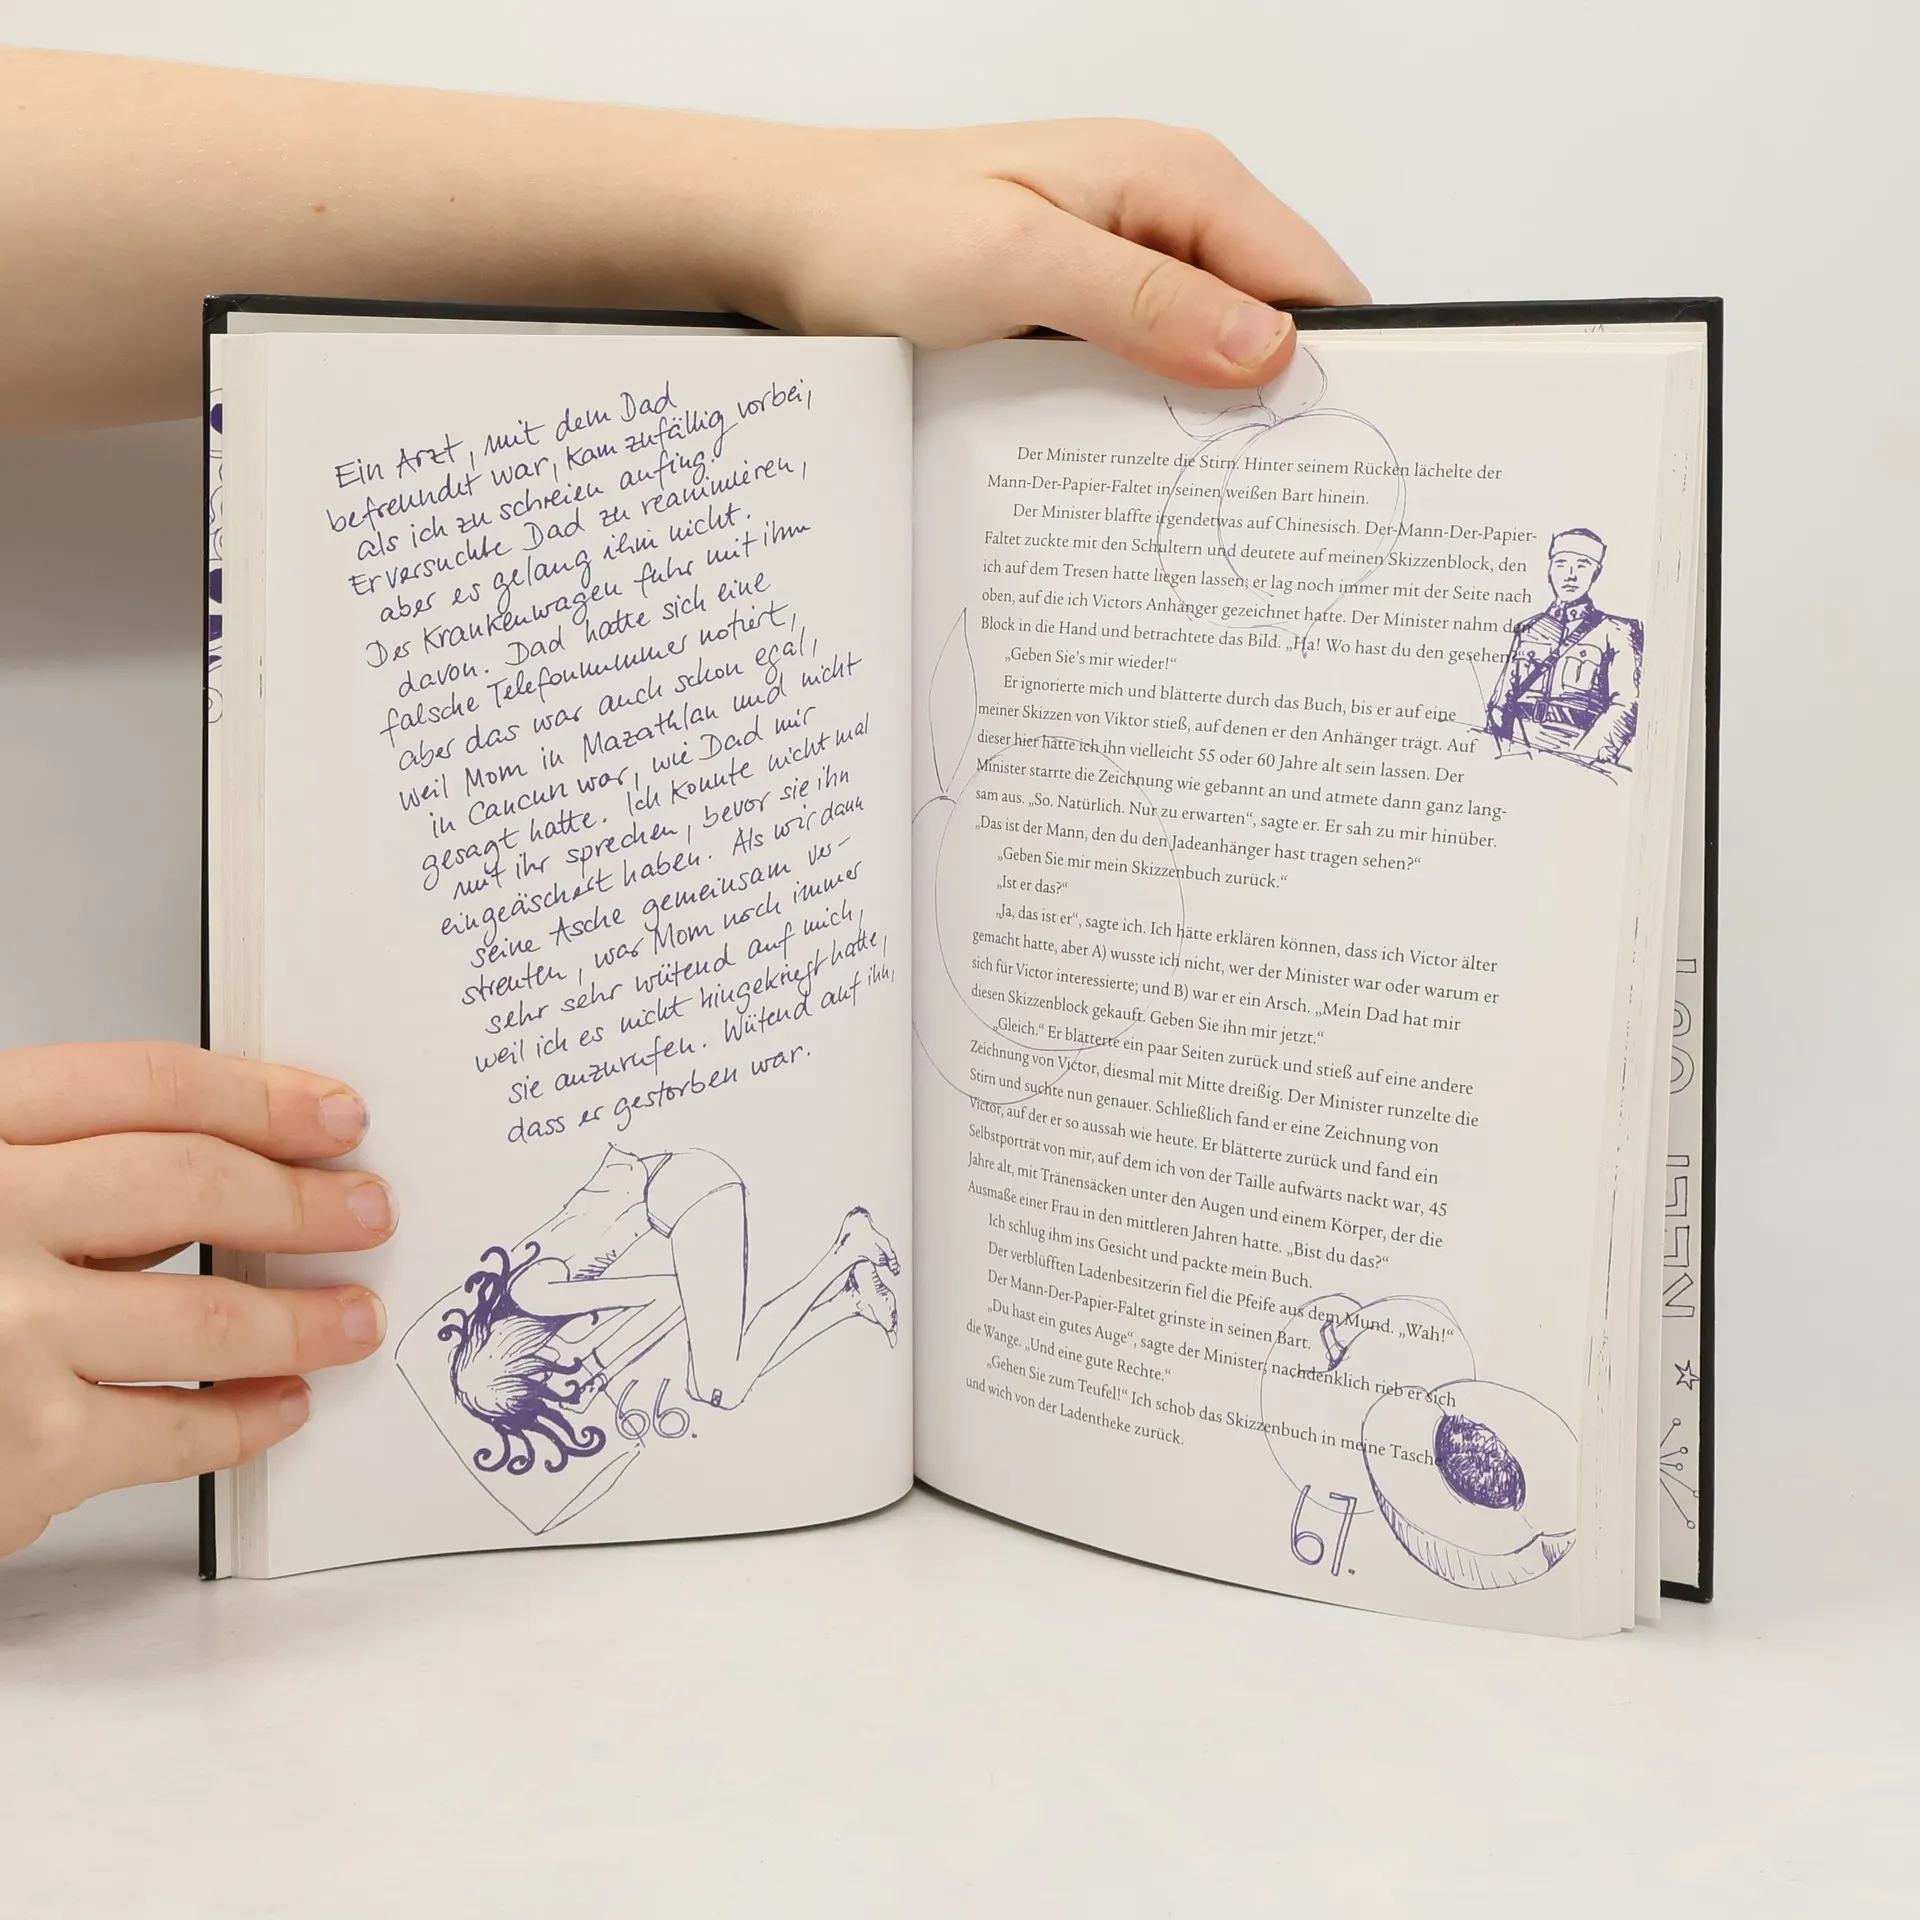 Ein Arzt, mit dem Dad
befreundet war, kam zufällig vorbei,
als ich zu schreien anfing.
Er versuchte Dad zu reanimieren,
aber es gelang ihm nicht.
Der Krankenwagen fuhr mit ihm
davon. Dad hatte sich eine
falsche Telefonnummer notiert,
aber das war auch schon egal,
weil Mom in Mazathlan und nicht
in Cancun war, wie Dad mir
gesagt hatte. Ich konnte nicht mal
mit ihr sprechen, bevor sie ihn
eingeäschert haben. Als wir dann
seine Asche gemeinsam ver-
streuten, war Mom noch immer
sehr sehr wütend auf mich,
weil ich es nicht hingekriegt hatte,
sie anzurufen. Wütend auf ihn,
dass er gestorben war.
66.
Der Minister runzelte die Stirn. Hinter seinem Rücken lächelte der
Mann-Der-Papier-Faltet in seinen weißen Bart hinein.
Der Minister blaffte irgendetwas auf Chinesisch. Der-Mann-Der-Papier-
Faltet zuckte mit den Schultern und deutete auf meinen Skizzenblock, den
ich auf dem Tresen hatte liegen lassen; er lag noch immer mit der Seite nach
oben, auf die ich Victors Anhänger gezeichnet hatte. Der Minister nahm den
Block in die Hand und betrachtete das Bild. „Ha! Wo hast du den gesehen?“
„Geben Sie’s mir wieder!“
Er ignorierte mich und blätterte durch das Buch, bis er auf eine
meiner Skizzen von Viktor stieß, auf denen er den Anhänger trägt. Auf
dieser hier hatte ich ihn vielleicht 55 oder 60 Jahre alt sein lassen. Der
Minister starrte die Zeichnung wie gebannt an und atmete dann ganz lang-
sam aus. „So. Natürlich. Nur zu erwarten“, sagte er. Er sah zu mir hinüber.
„Das ist der Mann, den du den Jadeanhänger hast tragen sehen?“
„Geben Sie mir mein Skizzenbuch zurück.“
„Ist er das?“
„Ja, das ist er“, sagte ich. Ich hätte erklären können, dass ich Victor älter
gemacht hatte, aber A) wusste ich nicht, wer der Minister war oder warum er
sich für Victor interessierte; und B) war er ein Arsch. „Mein Dad hat mir
diesen Skizzenblock gekauft. Geben Sie ihn mir jetzt.“
„Gleich.“ Er blätterte ein paar Seiten zurück und stieß auf eine andere
Zeichnung von Victor, diesmal mit Mitte dreißig. Der Minister runzelte die
Stirn und suchte nun genauer. Schließlich fand er eine Zeichnung von
Victor, auf der er so aussah wie heute. Er blätterte zurück und fand ein
Selbstporträt von mir, auf dem ich von der Taille aufwärts nackt war, 45
Jahre alt, mit Tränensäcken unter den Augen und einem Körper, der die
Ausmaße einer Frau in den mittleren Jahren hatte. „Bist du das?“
Ich schlug ihm ins Gesicht und packte mein Buch.
Der verblüfften Ladenbesitzerin fiel die Pfeife aus dem Mund. „Wah!“
Der Mann-Der-Papier-Faltet grinste in seinen Bart.
„Du hast ein gutes Auge“, sagte der Minister; nachdenklich rieb er sich
die Wange. „Und eine gute Rechte.“
„Gehen Sie zum Teufel!“ Ich schob das Skizzenbuch in meine Tasche
und wich von der Ladentheke zurück.
67.